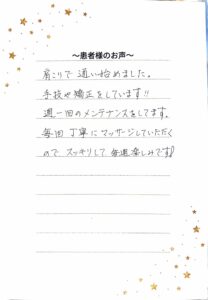 ～患者様のお声～
肩こりで通い始めました。
手技や矯正をしています!!
週一回のメンテナンスをしてます。
毎回丁寧にマッサージしていただく
ので スッキリして 毎週楽しみです♪